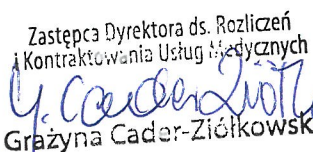 Zastępca Dyrektora ds. Rozliczeń
i Kontraktowania Usług Medycznych
G. Cader-Ziółk
Grażyna Cader-Ziółkowsk